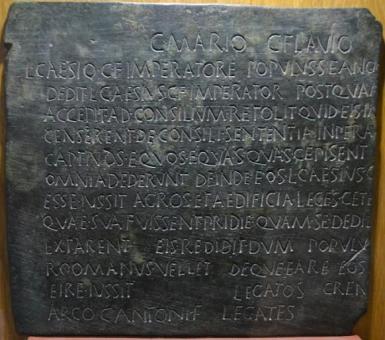 C MARIO C FLAVIO
L CAESIO C F IMPERATORE POPVLVS SEANO
DEDIT L CAESIVS C F IMPERATOR POSTQVAM
ACCEPIT AD CONSILIVM RETOLIT QVID EIS IM
CENSERENT DE CONSILI SENTENTIA INPERAV
CAPTIVOS EQVOS EQVAS QVAS CEPISENT
OMNIA DEDERVNT DEINDE EOS L CAESIVS C
ESSE IVSSIT AGROS ET AEDIFICIA LEGES CETE
QVAE SVA FVISSENT PRIDIE QVAM SE DEDID
EXTARENT EIS REDIDIT DVM POPVLV
ROOMANVS VELLET DEQVE EA RE EOS
EIRE IVSSIT LEGATOS CREN
ARCO CANTONI F LEGATES